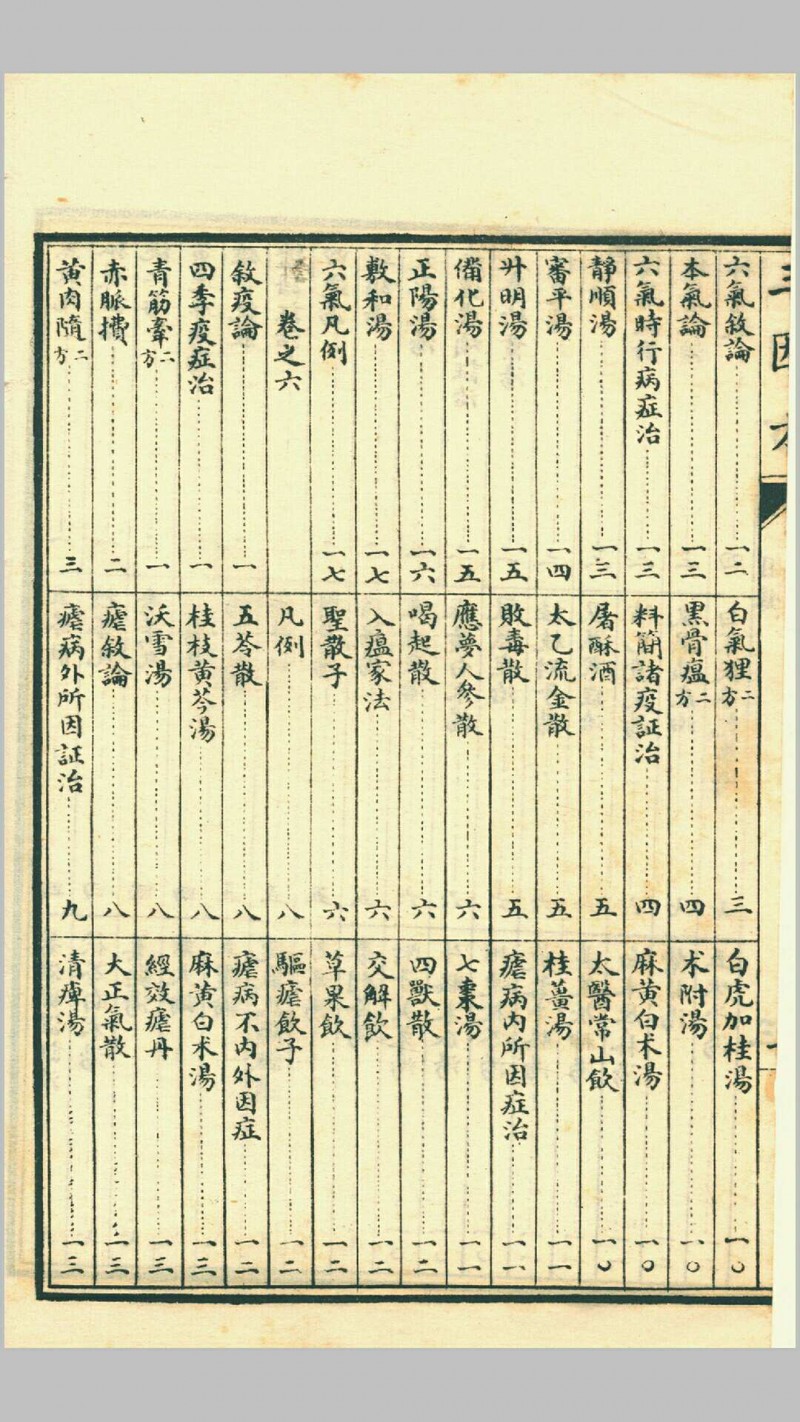 三因方
六氣敘論 一二
本氣論 一三
六氣時行病症治 一三
靜順湯 一三
審平湯 一四
升明湯 一五
備化湯 一五
正陽湯 一六
敷和湯 一七
六氣凡例 一七
卷之六
敘疫論 一
四季疫症治 一
青筋牽二方 一
赤脈攢 二
黃肉隨二方 三
白氣狸二方 三
黑骨瘟二方 四
料簡諸疫証治 四
屠酥酒 五
太乙流金散 五
敗毒散 五
應夢人參散 六
喝起散 六
入瘟家法 六
聖散子 六
凡例 八
五苓散 八
桂枝黃芩湯 八
沃雪湯 八
瘧敘論 八
瘧病外所因証治 九
白虎加桂湯 一〇
朮附湯 一〇
麻黃白朮湯 一〇
太醫常山飲 一〇
桂薑湯 一一
瘧病內所因症治 一一
七棗湯 一一
四獸散 一二
交解飲 一二
草果飲 一二
驅瘧飲子 一二
瘧病不內外因症 一二
麻黃白朮湯 一三
經效瘧丹 一三
大正氣散 一三
清痺湯 一三